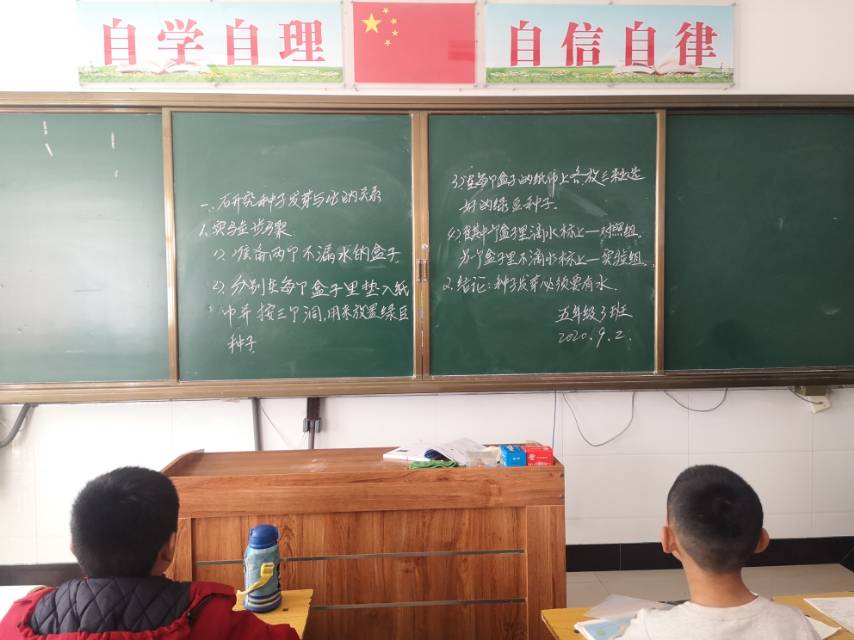 自学自理
自信自律
一、研究种子发芽与水的关系
1.实验步骤
(1)、准备两个不漏水的盒子.
(2)、分别在每个盒子里垫入纸
巾并按三个洞,用来放置绿豆
种子.
(3)、在每个盒子的纸巾上各放三粒选
好的绿豆种子.
(4)、在其中一个盒子里滴水标上一对照组.
另一个盒子里不滴水标上一实验组.
2.结论:种子发芽必须要有水.
五年级3班
2020.9.2.